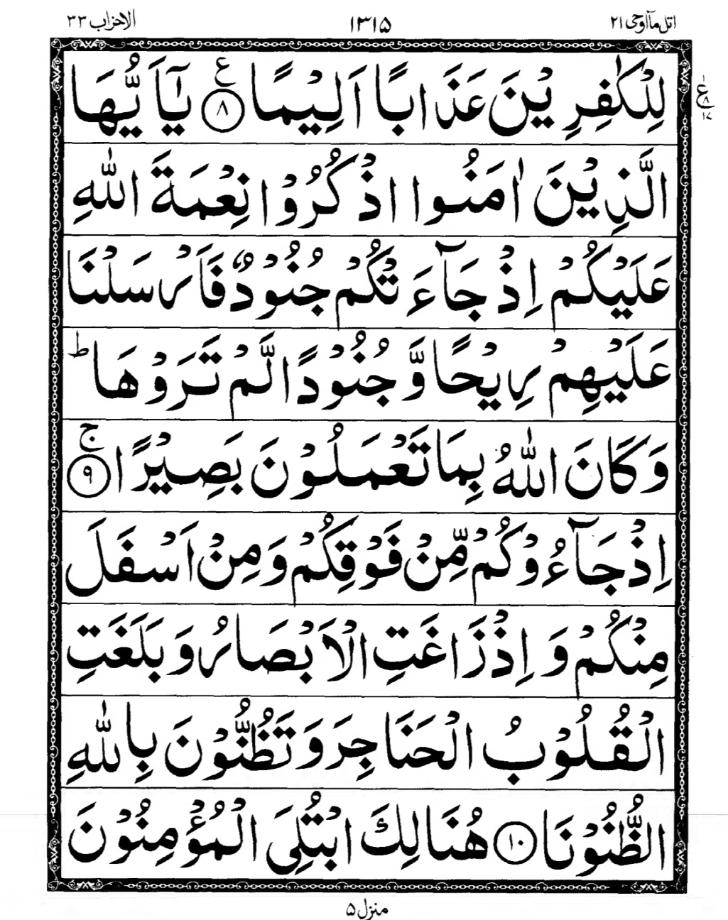 اتل مآ اوحی ۲۱ ۱۳۱۵ الاحزاب ۳۳
لِلْكٰفِرِيْنَ عَذَابًا اَلِيْمًا ۝۸ ع يٰۤاَيُّهَا
ع ۸ ۱۷
الَّذِيْنَ اٰمَنُوا اذْكُرُوْا نِعْمَةَ اللّٰهِ
عَلَيْكُمْ اِذْ جَآءَتْكُمْ جُنُوْدٌ فَاَرْسَلْنَا
عَلَيْهِمْ رِيْحًا وَّ جُنُوْدًا لَّمْ تَرَوْهَا ط
وَ كَانَ اللّٰهُ بِمَا تَعْمَلُوْنَ بَصِيْرًا ۝۹ ج
اِذْ جَآءُوْكُمْ مِّنْ فَوْقِكُمْ وَ مِنْ اَسْفَلَ
مِنْكُمْ وَ اِذْ زَاغَتِ الْاَبْصَارُ وَ بَلَغَتِ
الْقُلُوْبُ الْحَنَاجِرَ وَ تَظُنُّوْنَ بِاللّٰهِ
الظُّنُوْنَا ۝۱۰ هُنَالِكَ ابْتُلِيَ الْمُؤْمِنُوْنَ
منزل ۵